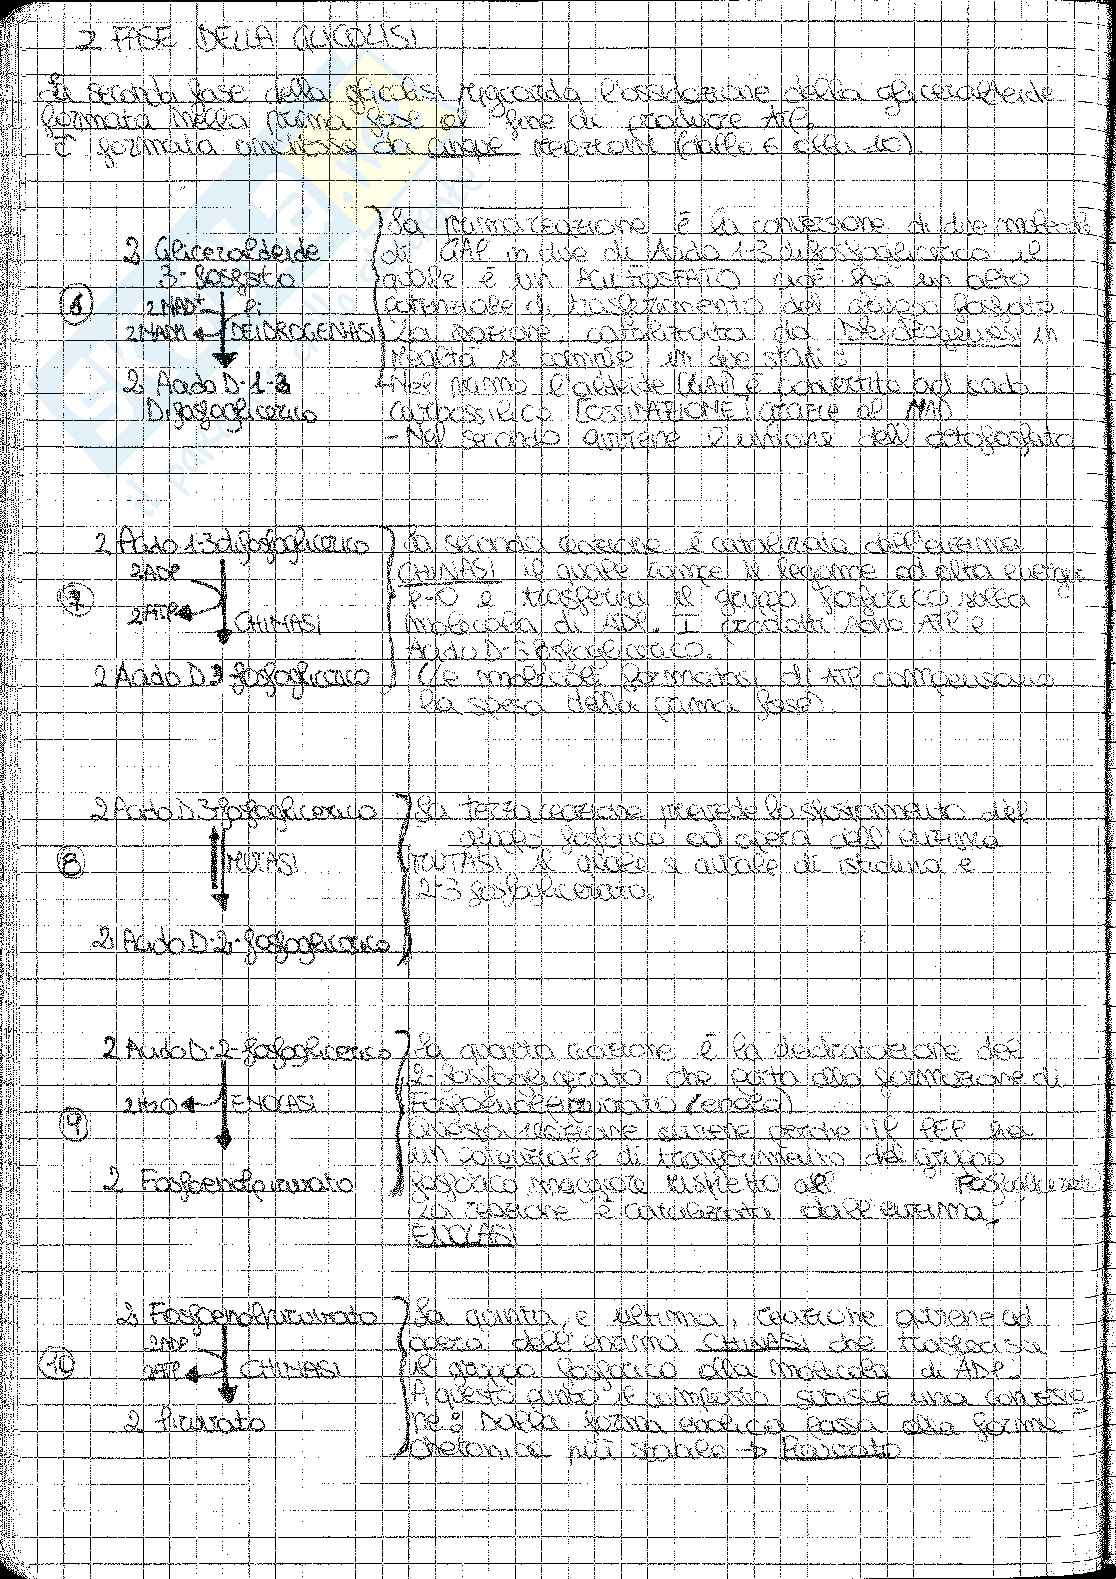 2 FASE DELLA GLICOLISI
La seconda fase della glicolisi riguarda l'ossidazione della gliceraldeide
formata nella prima fase al fine di produrre ATP.
È formata anch'essa da cinque reazioni (dalla 6 alla 10).
6
2 Gliceraldeide
3-fosfato
2NAD+ Pi
2NADH DEIDROGENASI
2 Acido D-1-3
Difosfoglicerico
La prima reazione è la conversione di due molecole
di GAP in due di Acido 1-3 difosfoglicerico il
quale è un ACILFOSFATO cioè ha un alto
potenziale di trasferimento del gruppo fosfato.
La reazione, catalizzata da Deidrogenasi in
realtà si compie in due stadi:
-Nel primo l'aldeide (GAP) è convertito ad acido
carbossilico (OSSIDAZIONE) grazie al NAD
-Nel secondo avviene l'unione dell'ortofosfato
7
2 Acido 1-3difosfoglicerico
2ADP
2ATP CHINASI
2 Acido D 3-fosfoglicerico
La seconda reazione è catalizzata dall'enzima
CHINASI il quale rompe il legame ad alta energia
P-O e trasferirà il gruppo fosforico sulla
molecola di ADP. I prodotti sono ATP e
Acido D-3-fosfoglicerico.
(le molecole formatasi di ATP compensano
la spesa della prima fase).
8
2 Acido D.3-fosfoglicerico
MUTASI
2 Acido D-2-fosfoglicerico
La terza reazione prevede lo spostamento del
gruppo fosforico ad opera dell'enzima
MUTASI il quale si avvale di istidina e
2-3 fosfoglicerato.
9
2 Acido D-2-fosfoglicerico
2H2O ENOLASI
2 Fosfoenolpiruvato
La quarta reazione è la deidratazione del
2-fosfoglicerato che porta alla formazione di
Fosfoenolpiruvato (enolo)
Questa reazione avviene perchè il PEP ha
un potenziale di trasferimento del gruppo
fosforico maggiore rispetto al
La reazione è catalizzata dall'enzima
ENOLASI
10
2 Fosfoenolpiruvato
2ADP
2ATP CHINASI
2 Piruvato
La quinta, e ultima, reazione avviene ad
opera dell'enzima CHINASI che trasferisce
il gruppo fosforico alla molecola di ADP.
A questo punto il composto subisce una conversio
ne: Dalla forma enolica passa alla forma
chetonica più stabile → Piruvato